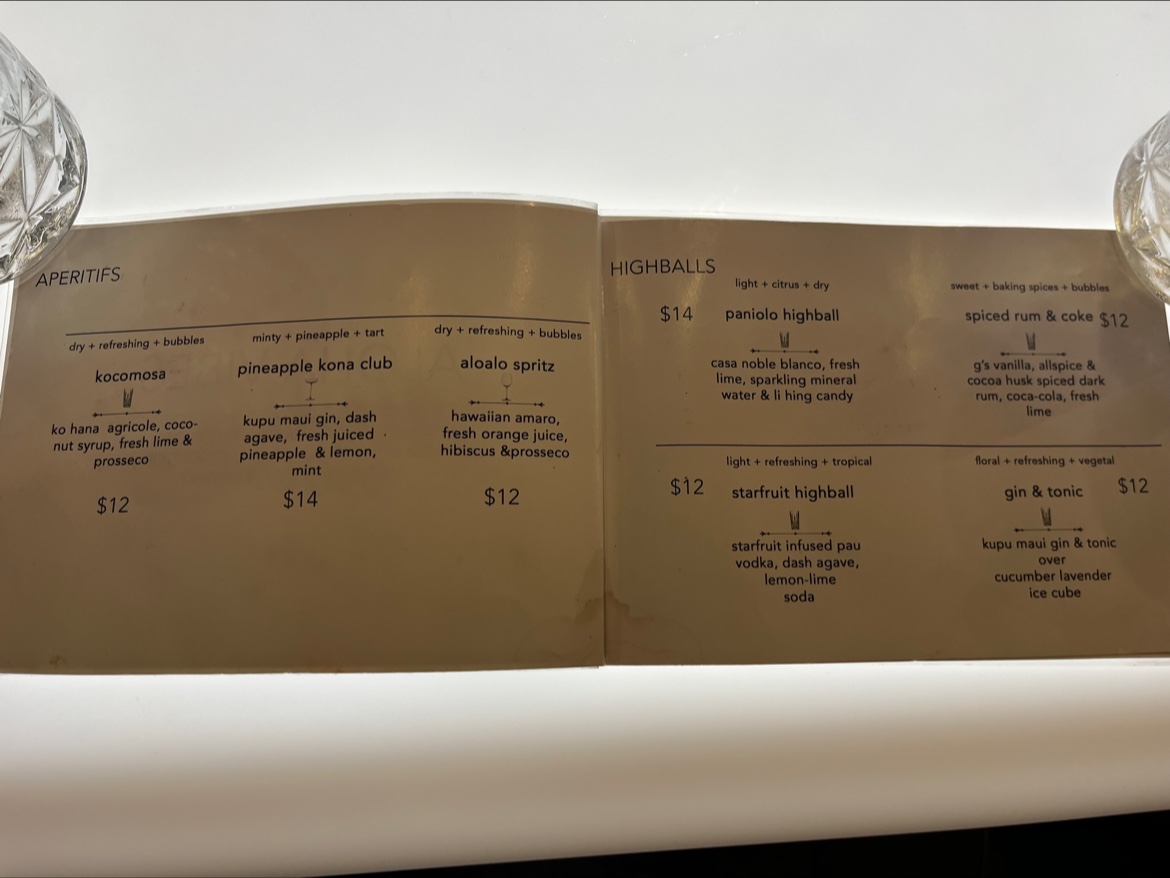 APERITIFS
dry + refreshing + bubbles
kocomosa
ko hana agricole, coco-
nut syrup, fresh lime &
prosseco
$12
minty + pineapple + tart
pineapple kona club
kupu maui gin, dash
agave, fresh juiced
pineapple & lemon,
mint
$14
dry + refreshing + bubbles
aloalo spritz
hawaiian amaro,
fresh orange juice,
hibiscus &prosseco
$12
HIGHBALLS
light + citrus + dry
$14 paniolo highball
casa noble blanco, fresh
lime, sparkling mineral
water & li hing candy
sweet + baking spices + bubbles
spiced rum & coke $12
g's vanilla, allspice &
cocoa husk spiced dark
rum, coca-cola, fresh
lime
light + refreshing + tropical
$12 starfruit highball
starfruit infused pau
vodka, dash agave,
lemon-lime
soda
floral + refreshing + vegetal
gin & tonic $12
kupu maui gin & tonic
over
cucumber lavender
ice cube